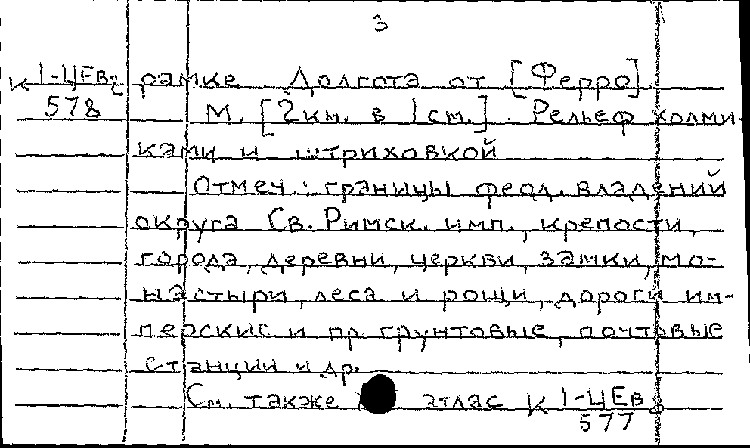 3
К 1-ЦЕв2 рамке Долгота от [Ферро]
578 М. [2км. в 1см.]. Рельеф холми-
ками и штриховкой
Отмеч.: границы феод. владений
округа Св. Римск. имп., крепости,
города, деревни, церкви, замки, мо-
настыри, леса и рощи, дороги им-
перские и пр. грунтовые, почтовые
станции и др.
См. также атлас К 1-ЦЕв
577